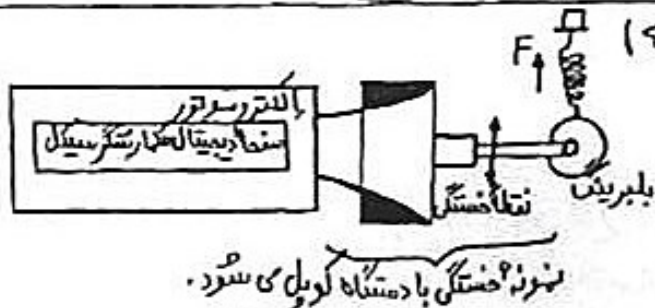 ۹)
F
یا الکتروموتور
صفحه دیجیتال شمارشگر سیکل
نقطه خستگی
بلبرینگ
نمونه خستگی با دستگاه کوپل می شود.